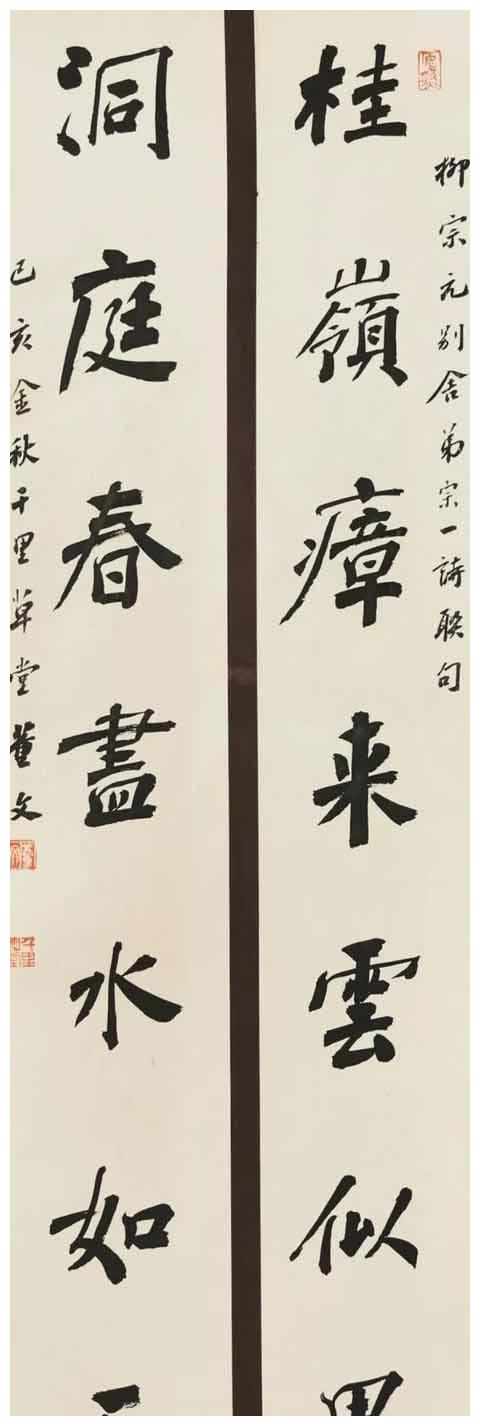 柳宗元别舍弟宗一詩聯句
桂嶺瘴来雲似
洞庭春盡水如
己亥金秋千里草堂董文